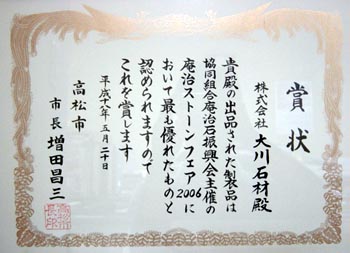 賞状
株式会社 大川石材殿
貴殿の出品された製品は
協同組合庵治石振興会主催の
庵治ストーンフェア2006に
おいて最も優れたものと
認められますので
これを賞します
平成十八年五月二十日
高松市
市長 増田昌三